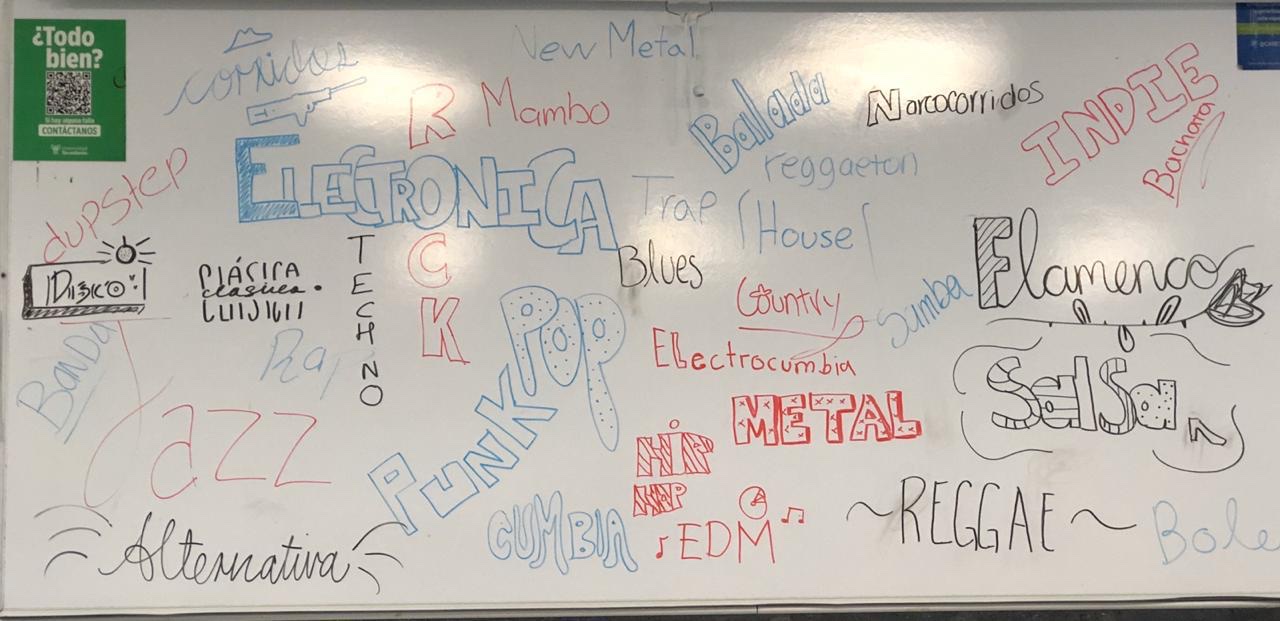 ¿Todo
bien?
Si hay alguna falla
CONTÁCTANOS
corridos
New Metal
R
O
C
K
Mambo
Balada
Narcocorridos
INDIE
Bachata
reggaeton
ELECTRONICA
dupstep
Trap
House
¡Disco!
CLÁSICA
clásica
TECHNO
Blues
Flamenco
Country
Samba
Banda
Rap
POP
Electrocumbia
Salsa
METAL
Jazz
PUNK
HIP
HOP
CUMBIA
EDM
~REGGAE~
Bole
Alternativa